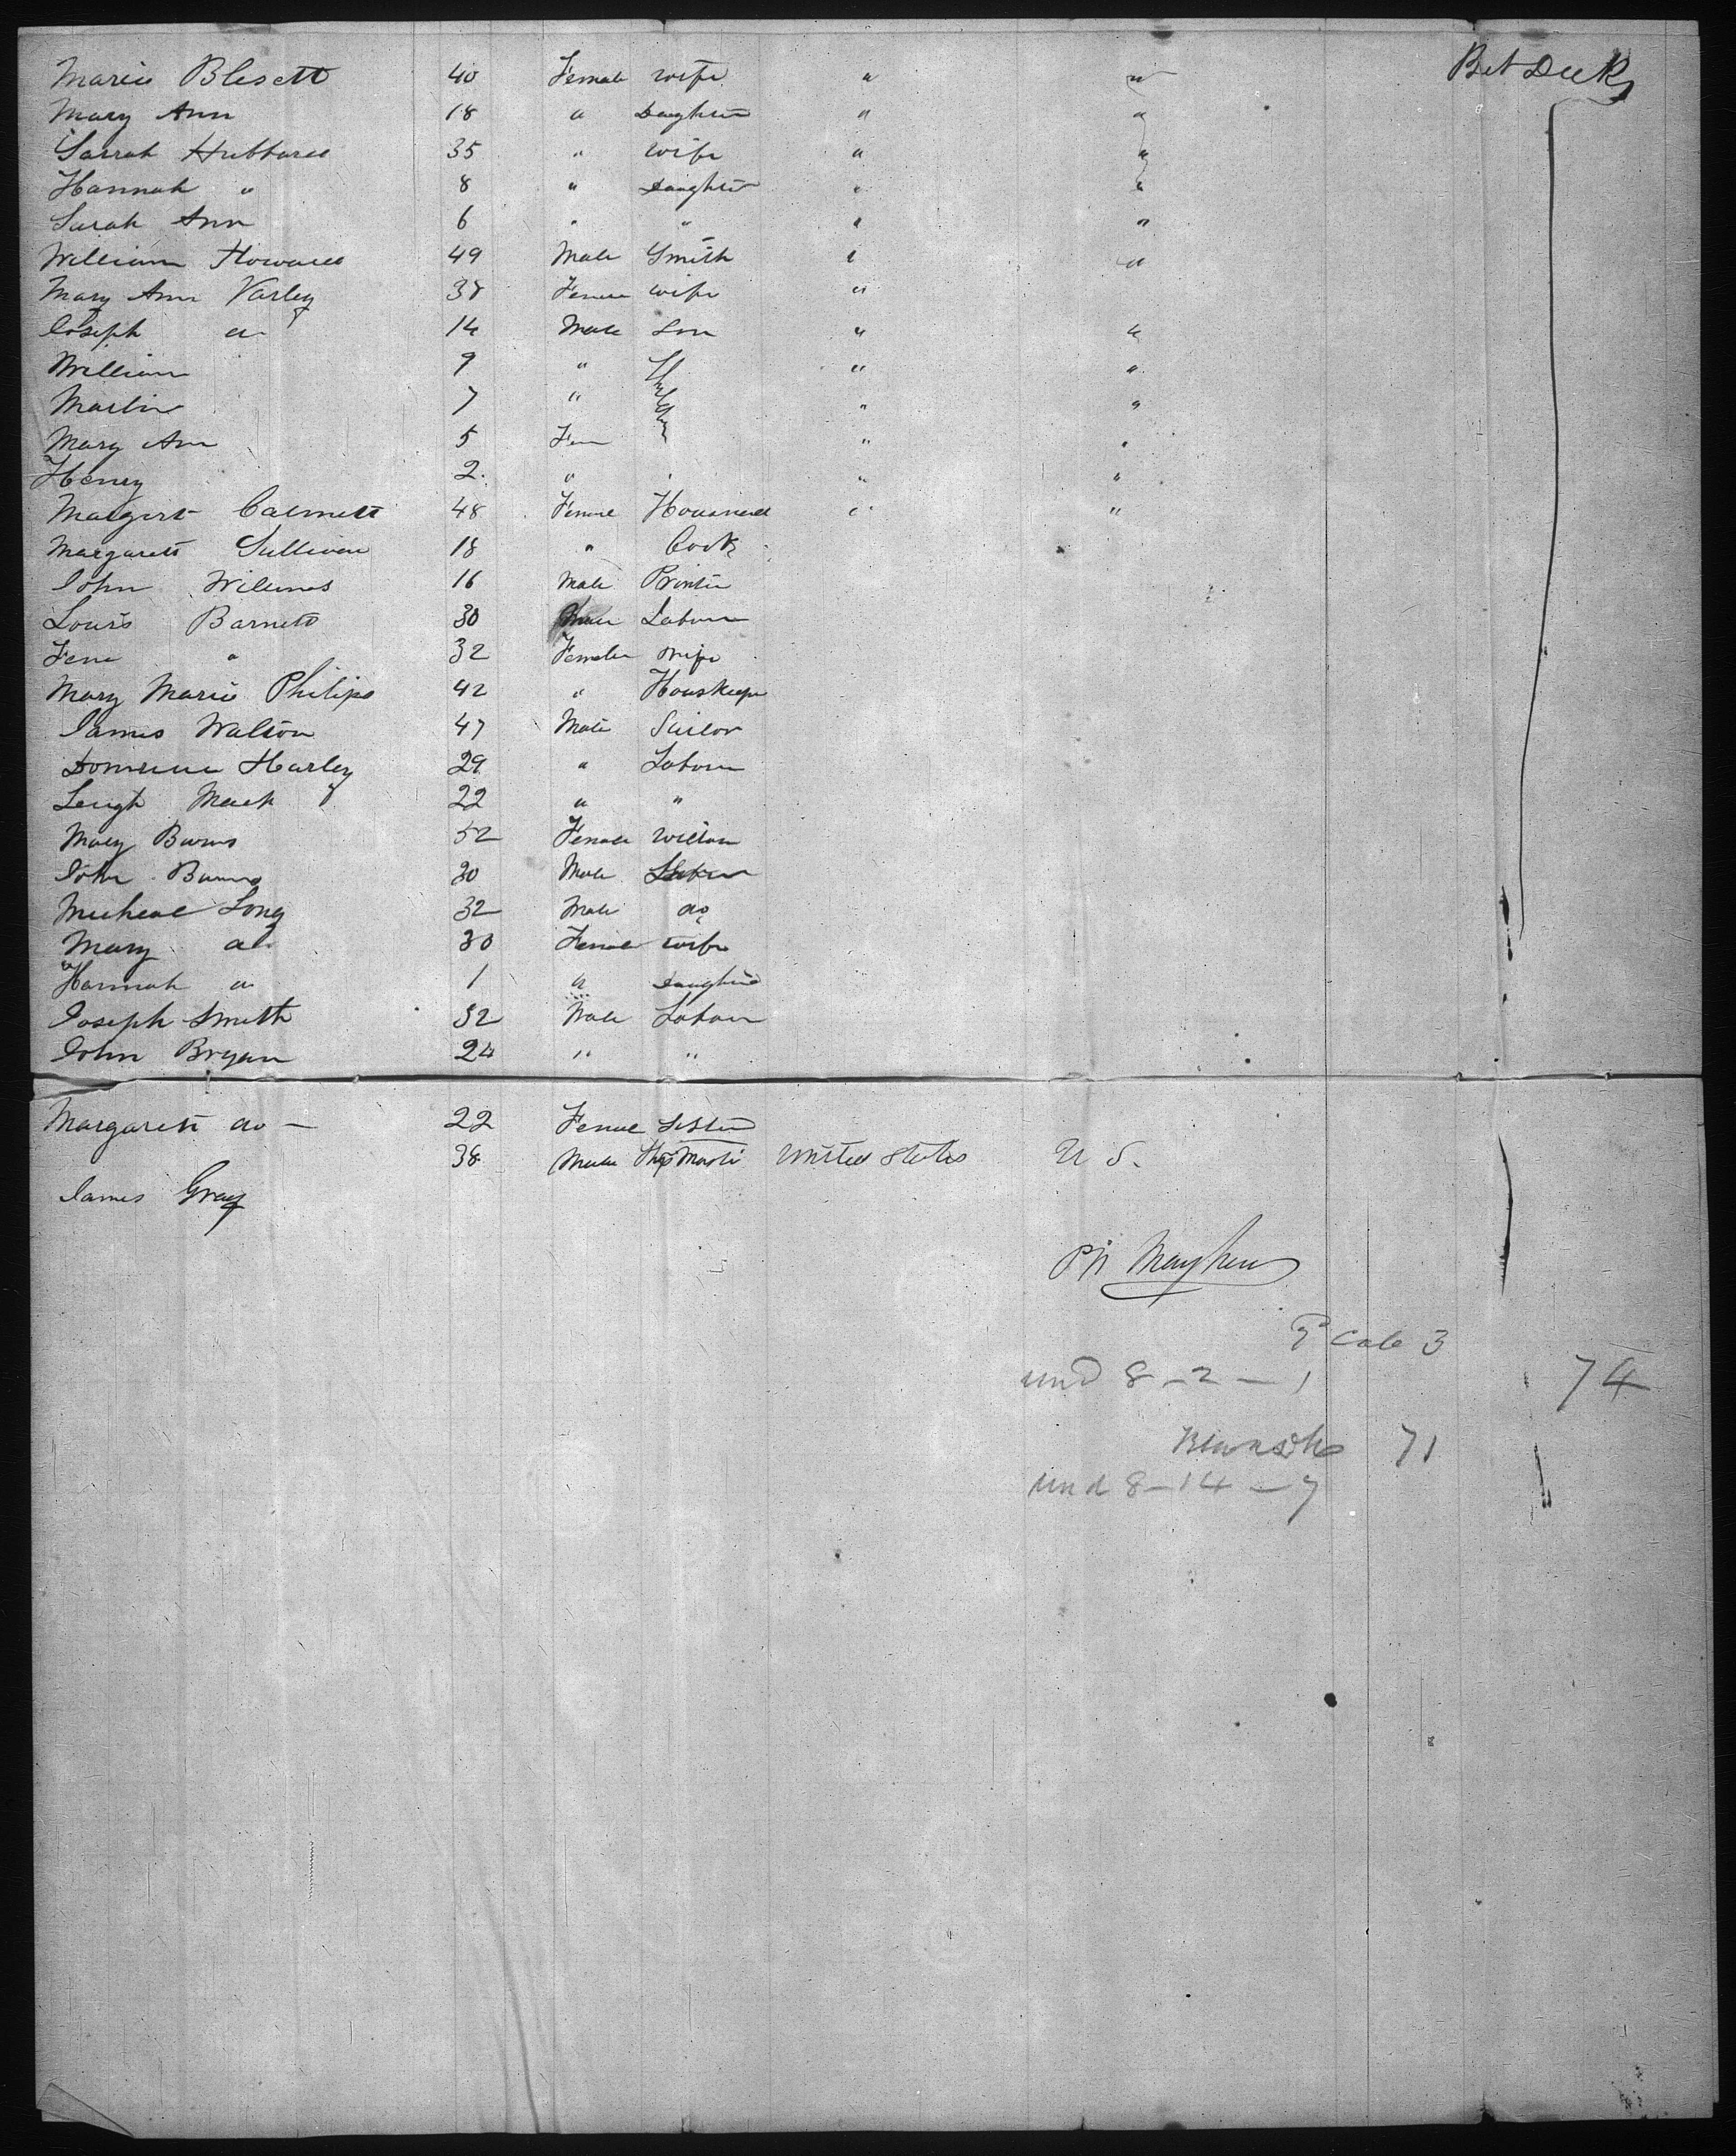 Maria Blesett 40 Female wife " " Bet Deck
Mary Ann 18 " Daughter " "
Sarrah Hubbard 35 " wife " "
Hannah " 8 " Daughter " "
Sarah Ann 6 " " " "
William Howard 49 Male Smith " "
Mary Ann Varley 38 Female wife "
Joseph " 14 Male Son " "
William 9 " " "
Martin 7 " " "
Mary Ann 5 Fem " "
Henry 2 " " "
Margirt 48 Female " "
Margarett Sullivan 18 " Cook
John Willims 16 Male Printer
Louis Barnett 30 Male Labour
" 32 Female wife
Mary Maria Philips 42 " Houskeeper
James Walton 47 Male Sailor
Harley 29 " Labour
Mack 22 " "
Mary Burns 52 Female
John Burns 30 Male
Micheal Long 32 Male do
Mary do 30 Female wife
Hannah " 1 " Daughter
Joseph Smith 32 Male Labour
John Bryan 24 " "
Margarett do — 22 Female Sister
38 Male Ship Master United States U S.
James Gray
Mayhew
Cab 3
und 8 - 2 - 1 74
71
und 8 - 14 - 7